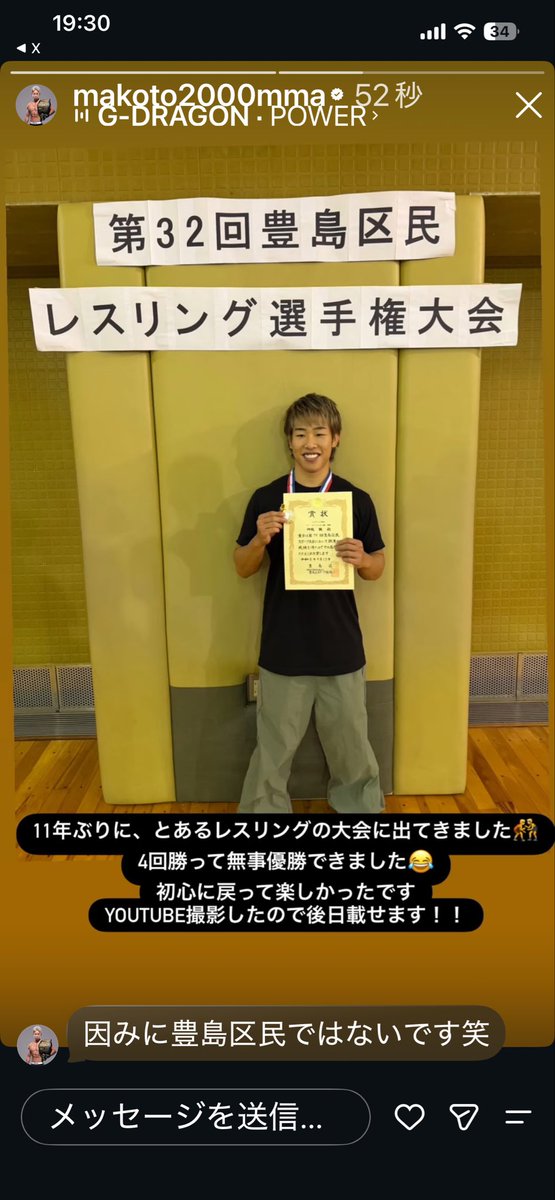 19:30
34
◀ X
makoto2000mma 52秒
G-DRAGON · POWER >
第32回豊島区民
レスリング選手権大会
賞状
11年ぶりに、とあるレスリングの大会に出てきました🤼
4回勝って無事優勝できました😂
初心に戻って楽しかったです
YOUTUBE撮影したので後日載せます！！
因みに豊島区民ではないです笑
メッセージを送信...